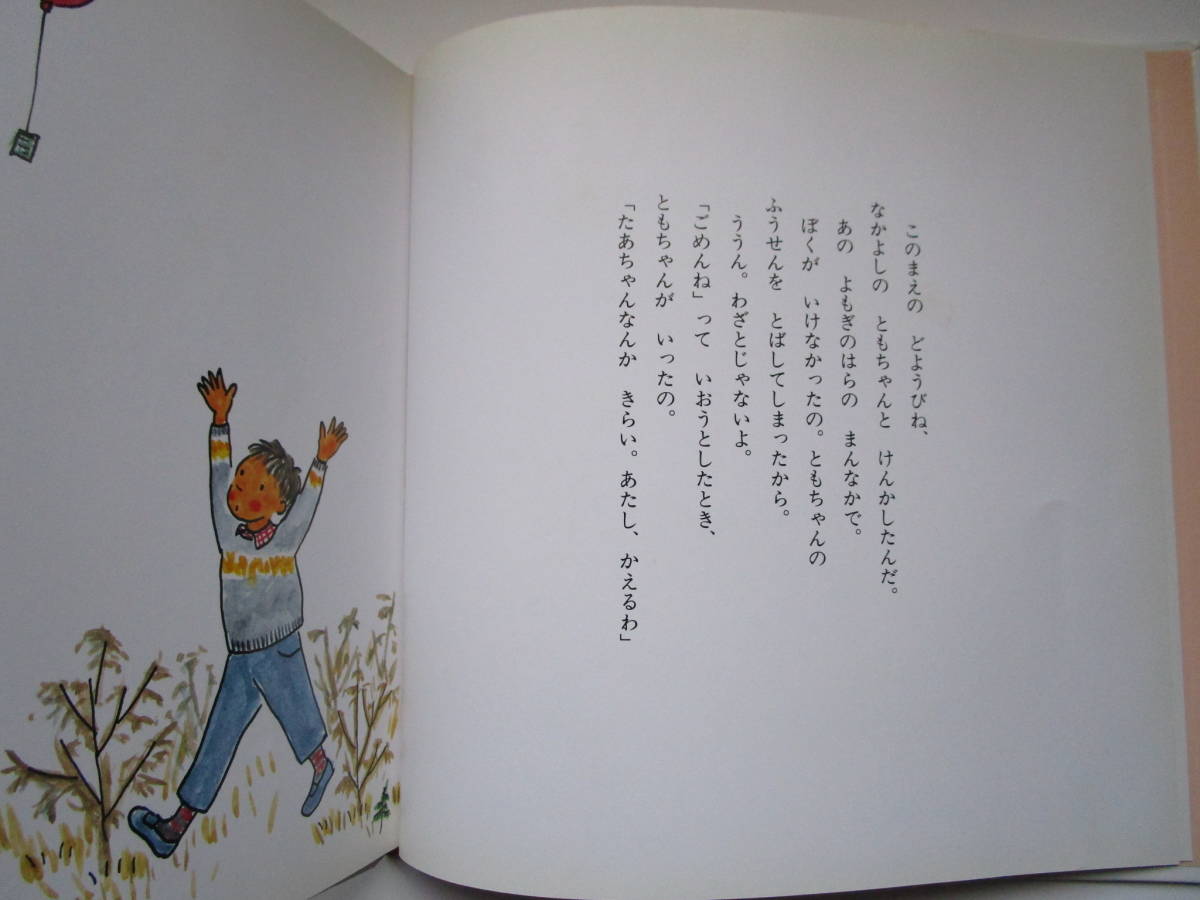 このまえの　どようびね、
なかよしの　ともちゃんと　けんかしたんだ。
あの　よもぎのはらの　まんなかで。
ぼくが　いけなかったの。ともちゃんの
ふうせんを　とばしてしまったから。
ううん。わざとじゃないよ。
「ごめんね」って　いおうとしたとき、
ともちゃんが　いったの。
「たあちゃんなんか　きらい。あたし、かえるわ」